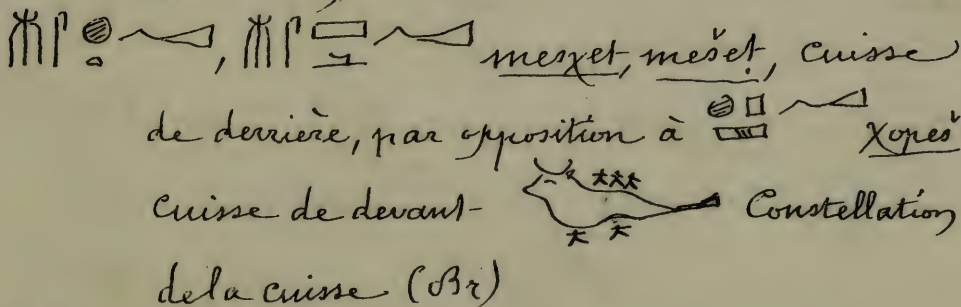 𓄟𓋴𓐍𓏏𓄗, 𓄟𓋴𓈙𓍿𓄗 mesχet, mešeṭ, cuisse
de derrière, par opposition à 𓐍𓊪𓈙𓄗 χopeš
cuisse de devant- Constellation
de la cuisse (Br)